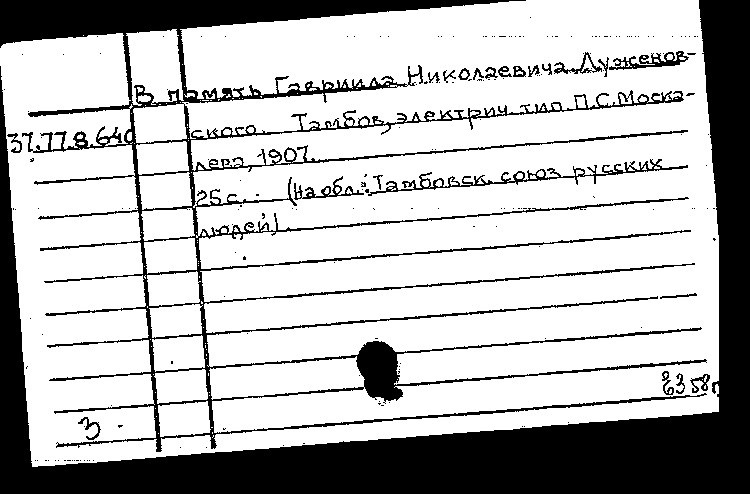 В память Гавриила Николаевича Луженов-
37.77.8.640 ского. Тамбов, электрич. тип. П.С. Моска-
лева, 1907.
25 с. (На обл.: Тамбовск. союз русских
людей).
3